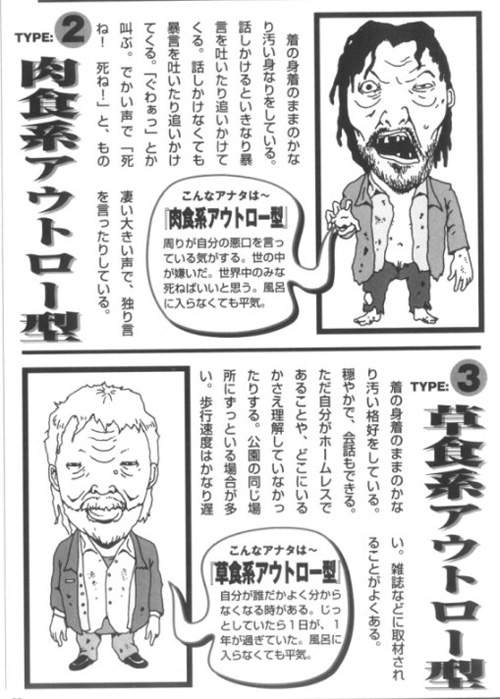 TYPE: 2
肉食系アウトロー型
着の身着のままのかな
り汚い身なりをしている。
話しかけるといきなり暴
言を吐いたり追いかけて
くる。話しかけなくても
暴言を吐いたり追いかけ
てくる。「ぐわぁっ」とか
叫ぶ。でかい声で「死
ね！ 死ね！」と、もの
凄い大きい声で、独り言
を言ったりしている。
こんなアナタは〜
『肉食系アウトロー型』
周りが自分の悪口を言っ
ている気がする。世の中
が嫌いだ。世界中のみな
死ねばいいと思う。風呂
に入らなくても平気。
TYPE: 3
草食系アウトロー型
着の身着のままのかな
り汚い格好をしている。
穏やかで、会話もできる。
ただ自分がホームレスで
あることや、どこにいる
かさえ理解していなかっ
たりする。公園の同じ場
所にずっといる場合が多
い。歩行速度はかなり遅
い。雑誌などに取材され
ることがよくある。
こんなアナタは〜
『草食系アウトロー型』
自分が誰だかよく分から
なくなる時がある。じっ
としていたら1日が、1
年が過ぎていた。風呂に
入らなくても平気。